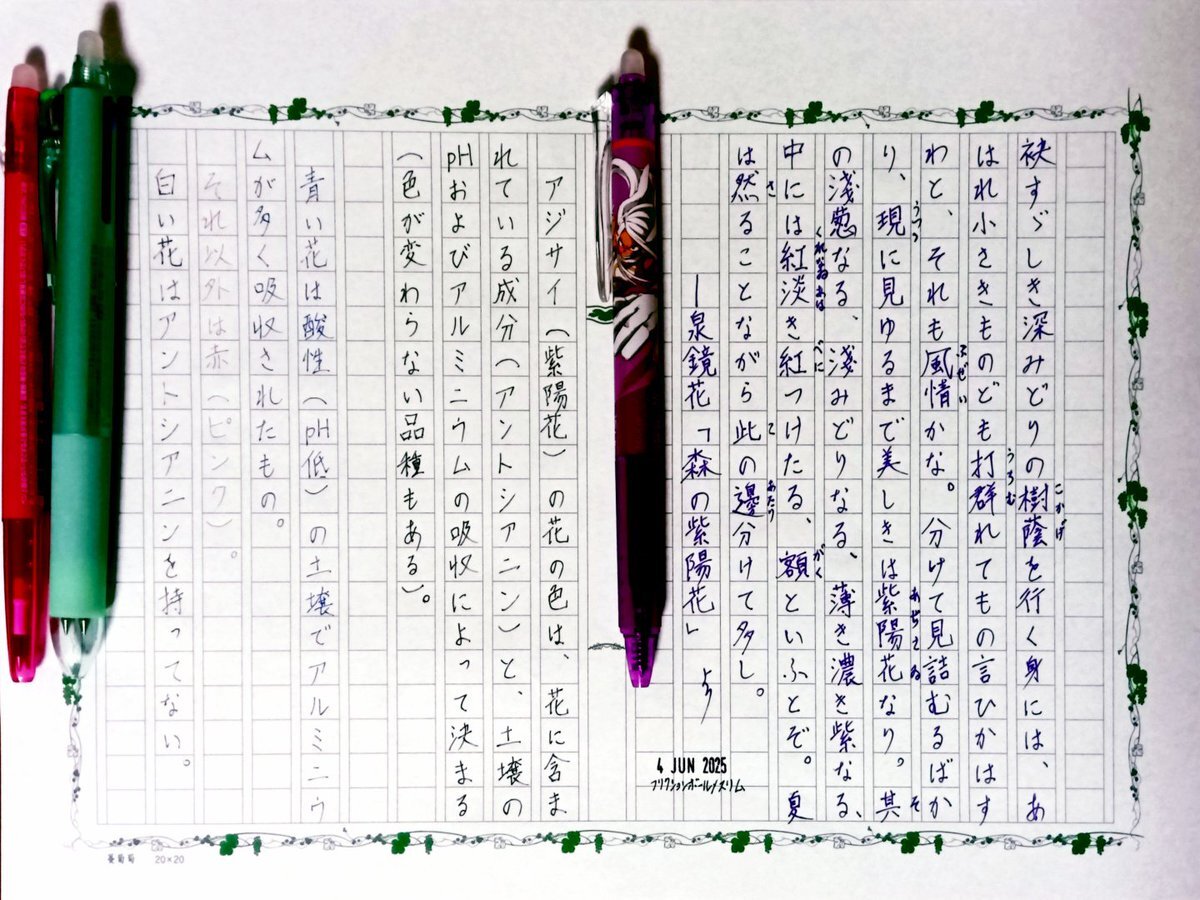 袂すゞしき深みどりの樹蔭を行く身には、あ
はれ小さきものどもも打群れてもの言ひかはす
わと、それも風情かな。分けて見詰むるばか
り、現に見ゆるまで美しきは紫陽花なり。其
の淺葱なる、淺みどりなる、薄き濃き紫なる、
中には紅淡き紅つけたる、額といふとぞ。夏
は然ることながら此の邊分けて多し。
―泉鏡花「森の紫陽花」より
4 JUN 2025
フリクションボール/スリム
アジサイ(紫陽花)の花の色は、花に含ま
れている成分(アントシアニン)と、土壌の
pHおよびアルミニウムの吸収によって決まる
(色が変わらない品種もある)。
青い花は酸性(pH低)の土壌でアルミニウ
ムが多く吸収されたもの。
それ以外は赤(ピンク)。
白い花はアントシアニンを持ってない。
20×20